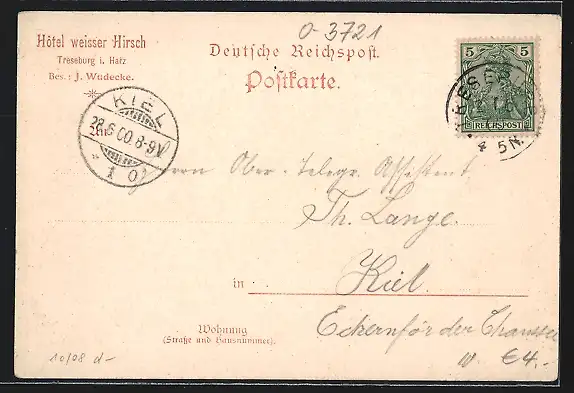 o-3721
Hôtel weisser Hirsch
Treseburg i. Harz
Bes.: J. Wadecke.
Deutsche Reichspost.
Postkarte.
5 5
REICHSPOST
5 N.
KIEL
28.6.00.8-9V
1 0
An
Herrn Ober-Telegr. Assistent
Th. Lange.
in Kiel.
Eckernförder Chaussee
Wohnung
(Straße und Hausnummer).
10/08 d-
€4.-